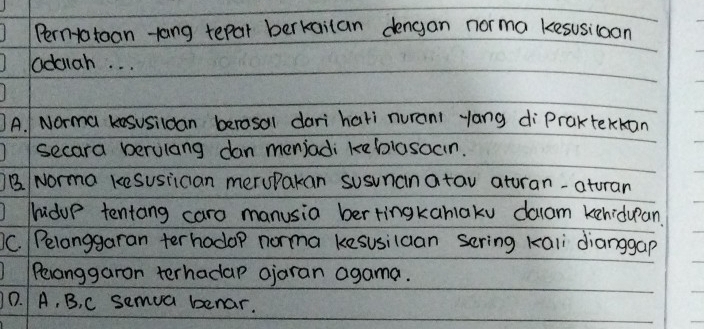 Pernyataan yang tepat berkaitan dengan norma kesusilaan
adalah ...
A. Norma kesusilaan berasal dari hati nurani yang di Praktekkan
secara berulang dan menjadi kebiasaan.
B. Norma kesusilaan merupakan susunan atau aturan - aturan
hidup tentang cara manusia bertingkahlaku dalam kehidupan.
C. Pelanggaran terhadap norma kesusilaan sering kali dianggap
Pelanggaran terhadap ajaran agama.
D. A, B, C semua benar.